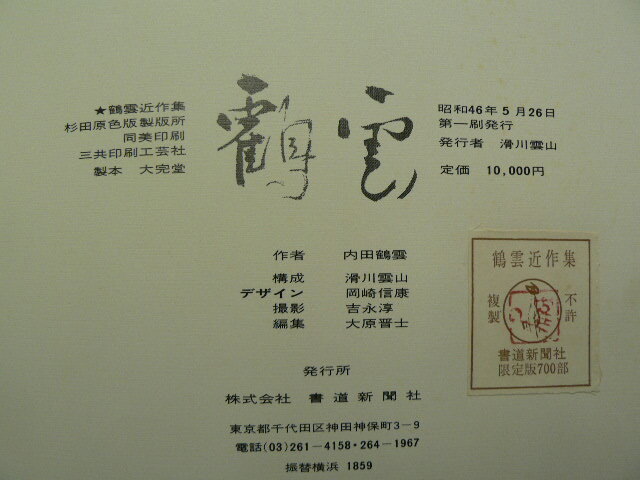 ★鶴雲近作集
杉田原色版製版所
同美印刷
三共印刷工芸社
製本 大完堂
鶴雲
昭和46年5月26日
第一刷発行
発行者 滑川雲山
定価 10,000円
作者 内田鶴雲
構成 滑川雲山
デザイン 岡崎信康
撮影 吉永淳
編集 大原晋士
発行所
株式会社 書道新聞社
東京都千代田区神田神保町3-9
電話(03)261-4158・264-1967
振替横浜 1859
鶴雲近作集
不許
複製
書道新聞社
限定版700部